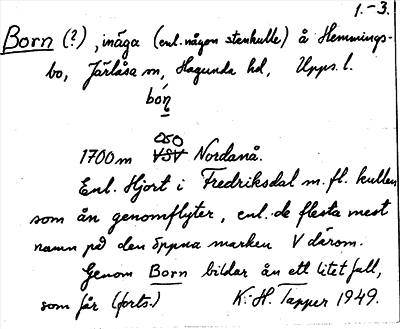 1.-3.
Born (?), inäga (enl. någon stenkulle) å Hemmings-
bo, Järlåsa sn, Hagunda hd, Upps. l.
bón̠
OSO
1700 m VSV Nordanå.
Enl. Hjort i Fredriksdal m. fl. kullen
som ån genomflyter, enl. de flesta mest
namn på den öppna marken V därom.
Genom Born bildar ån ett litet fall,
som får (forts.) K.-H. Tapper 1949.